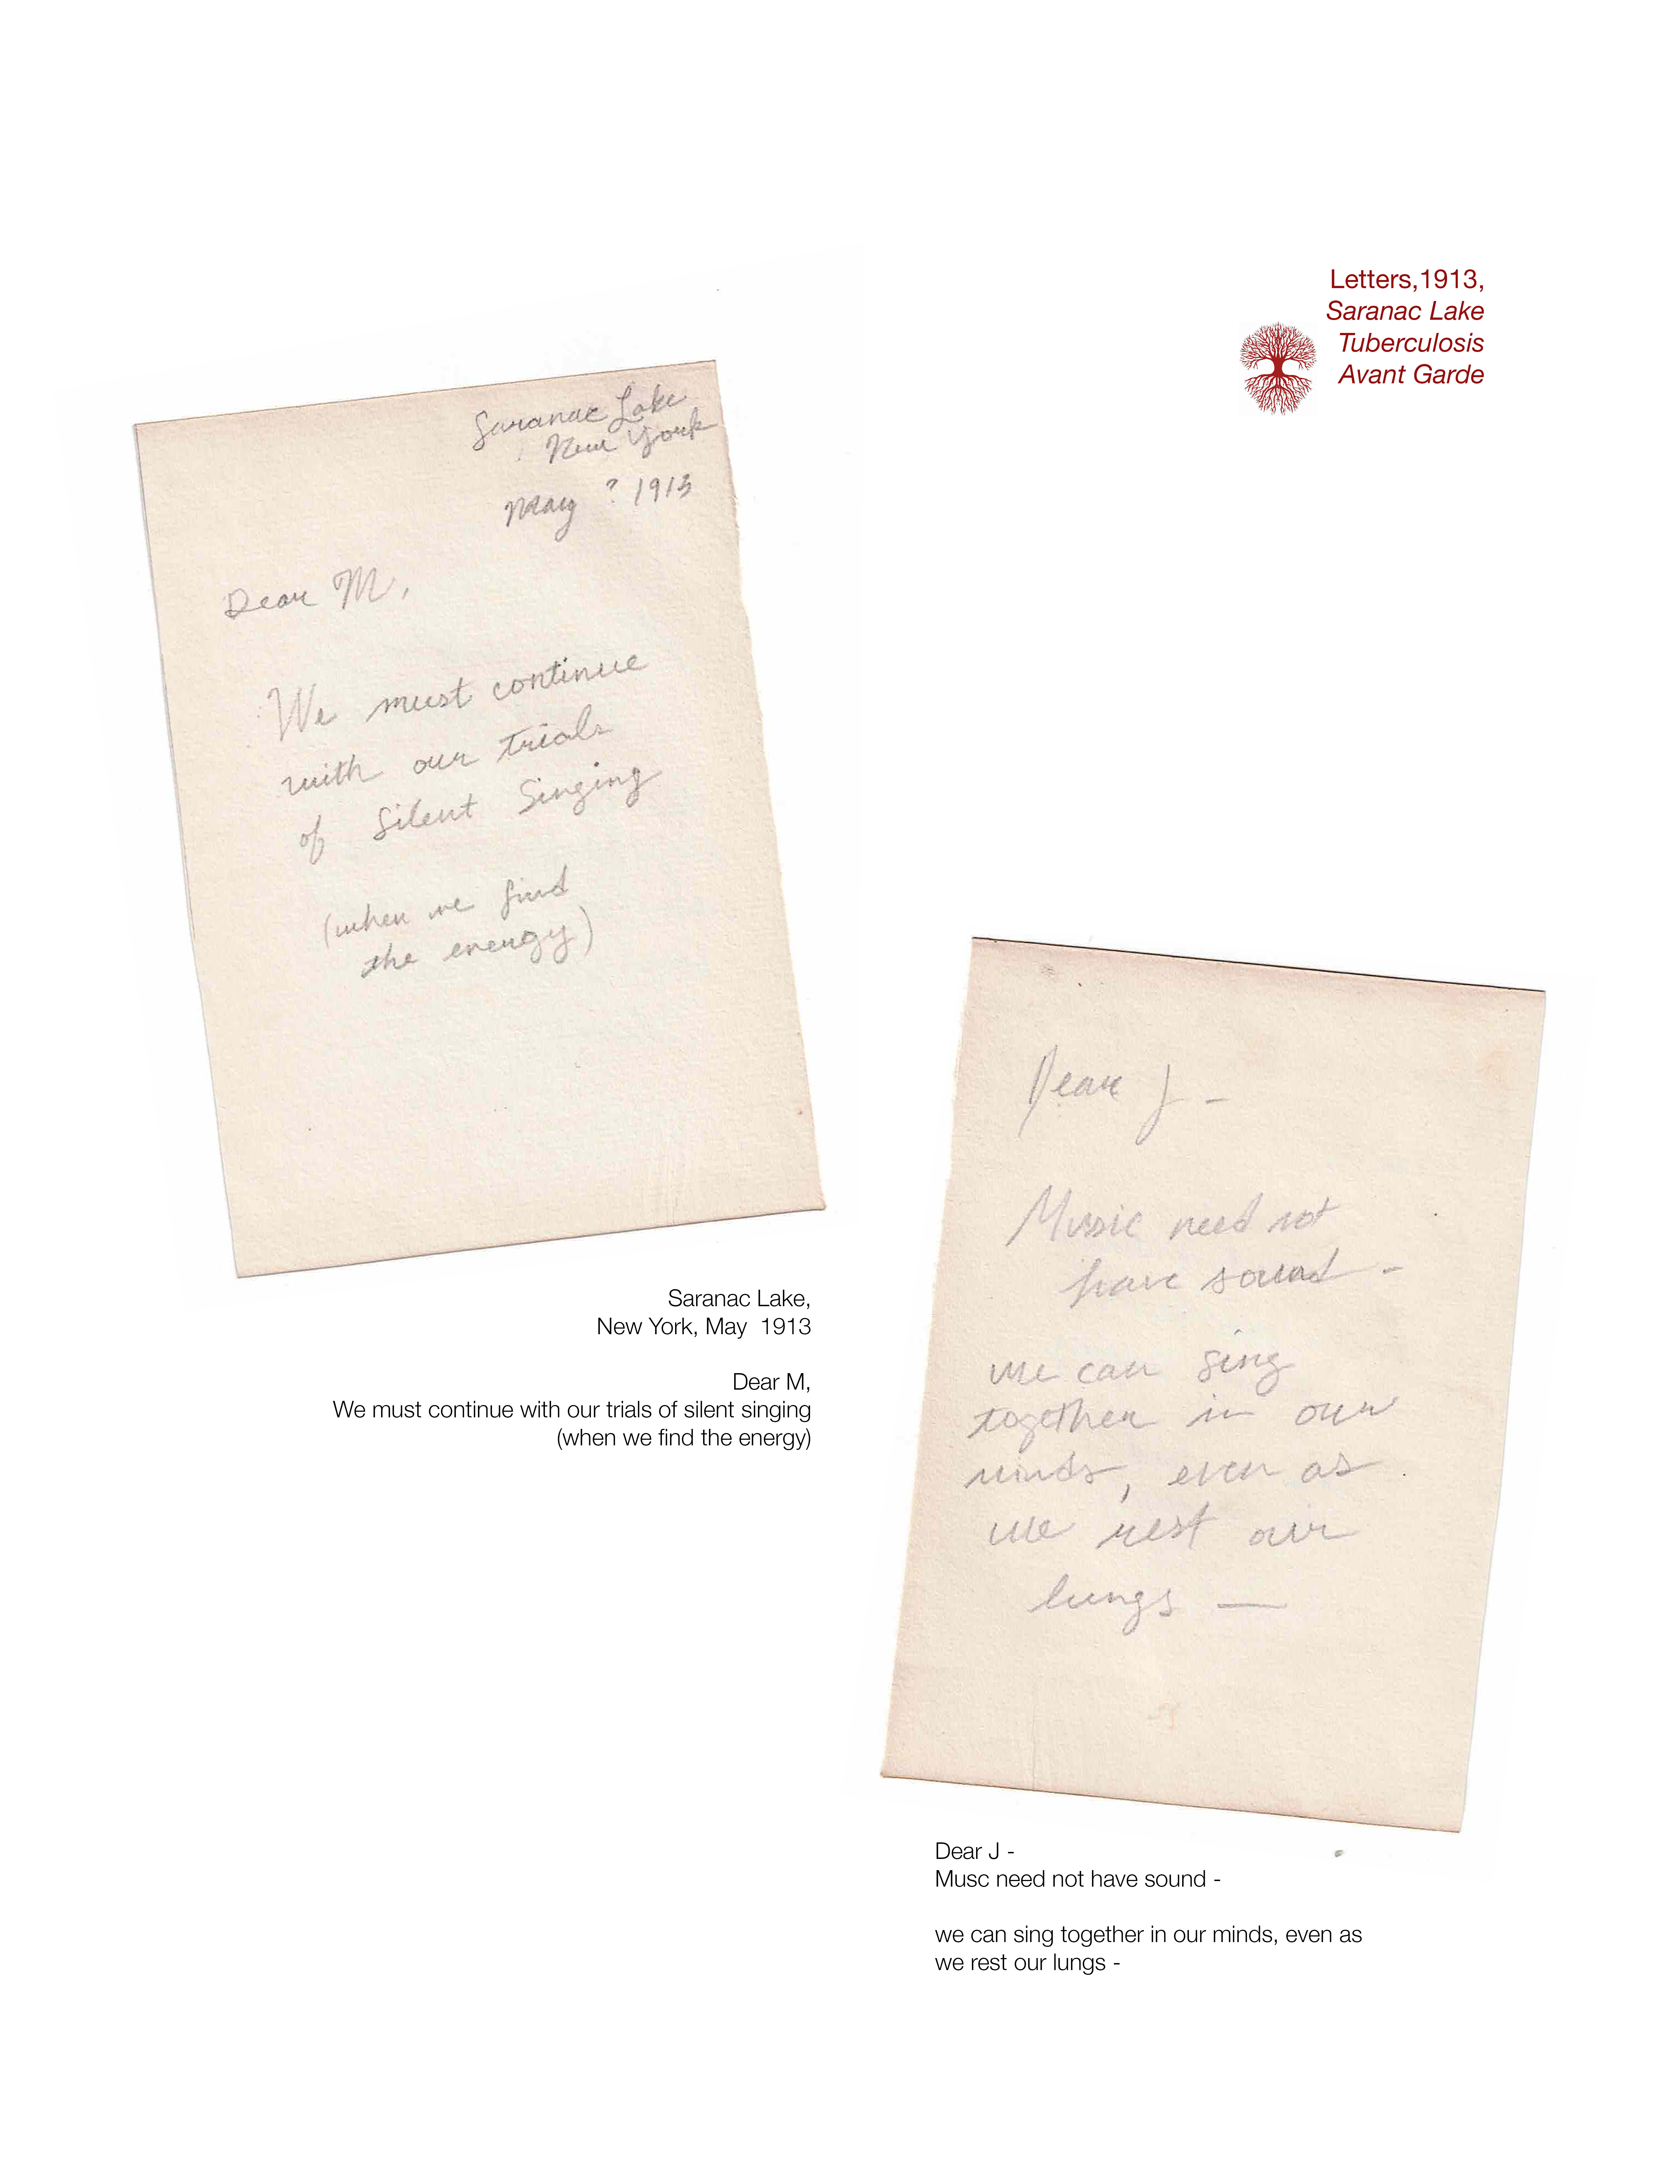 Letters,1913,
Saranac Lake
Tuberculosis
Avant Garde
Saranac Lake
New York
May ? 1913
Dear M,
We must continue
with our trials
of Silent Singing
(when we find
the energy)
Saranac Lake,
New York, May 1913
Dear M,
We must continue with our trials of silent singing
(when we find the energy)
Dear J -
Music need not
have sound -
we can sing
together in our
minds, even as
we rest our
lungs —
Dear J -
Musc need not have sound -
we can sing together in our minds, even as
we rest our lungs -